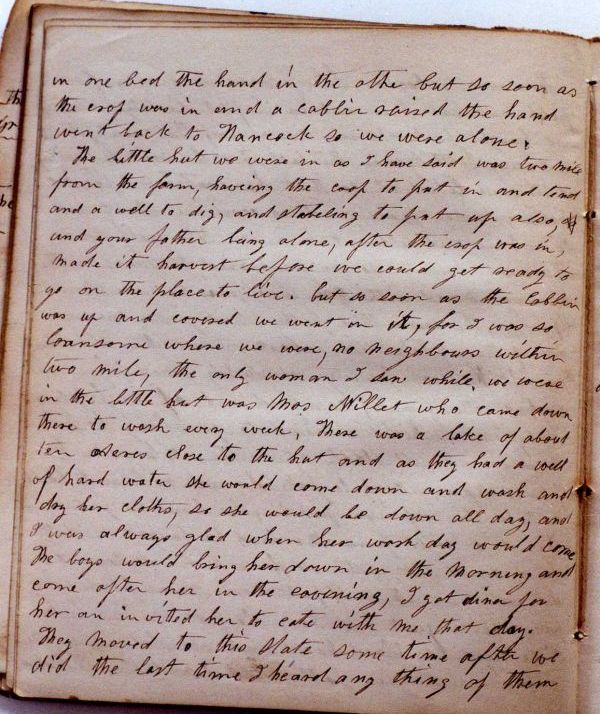 in one bed the hand in the othe but so soon as
the crop was in and a cablin raised the hand
went back to Hancock so we were alone.
The little hut we were in as I have said was two mile
from the farm, haveing the crop to put in and tend
and a well to dig, and stabeling to put up also,
and your father being alone, after the crop was in,
made it harvest before we could get ready to
go on the place to live. but so soon as the Cablin
was up and covered we went in it, for I was so
lonsome where we were, no neighbours within
two mile, the only woman I saw while we were
in the little hut was Mrs Millet who came down
there to wash every week, There was a lake of about
ten acres close to the hut and as they had a well
of hard water she would come down and wash and
dry her cloths, so she would be down all day, and
I was always glad when her wash day would come
The boys would bring her down in the morning and
come after her in the eavening, I got diner for
her an invited her to eate with me that day.
They moved to this state some time after we
did the last time I heard any thing of them